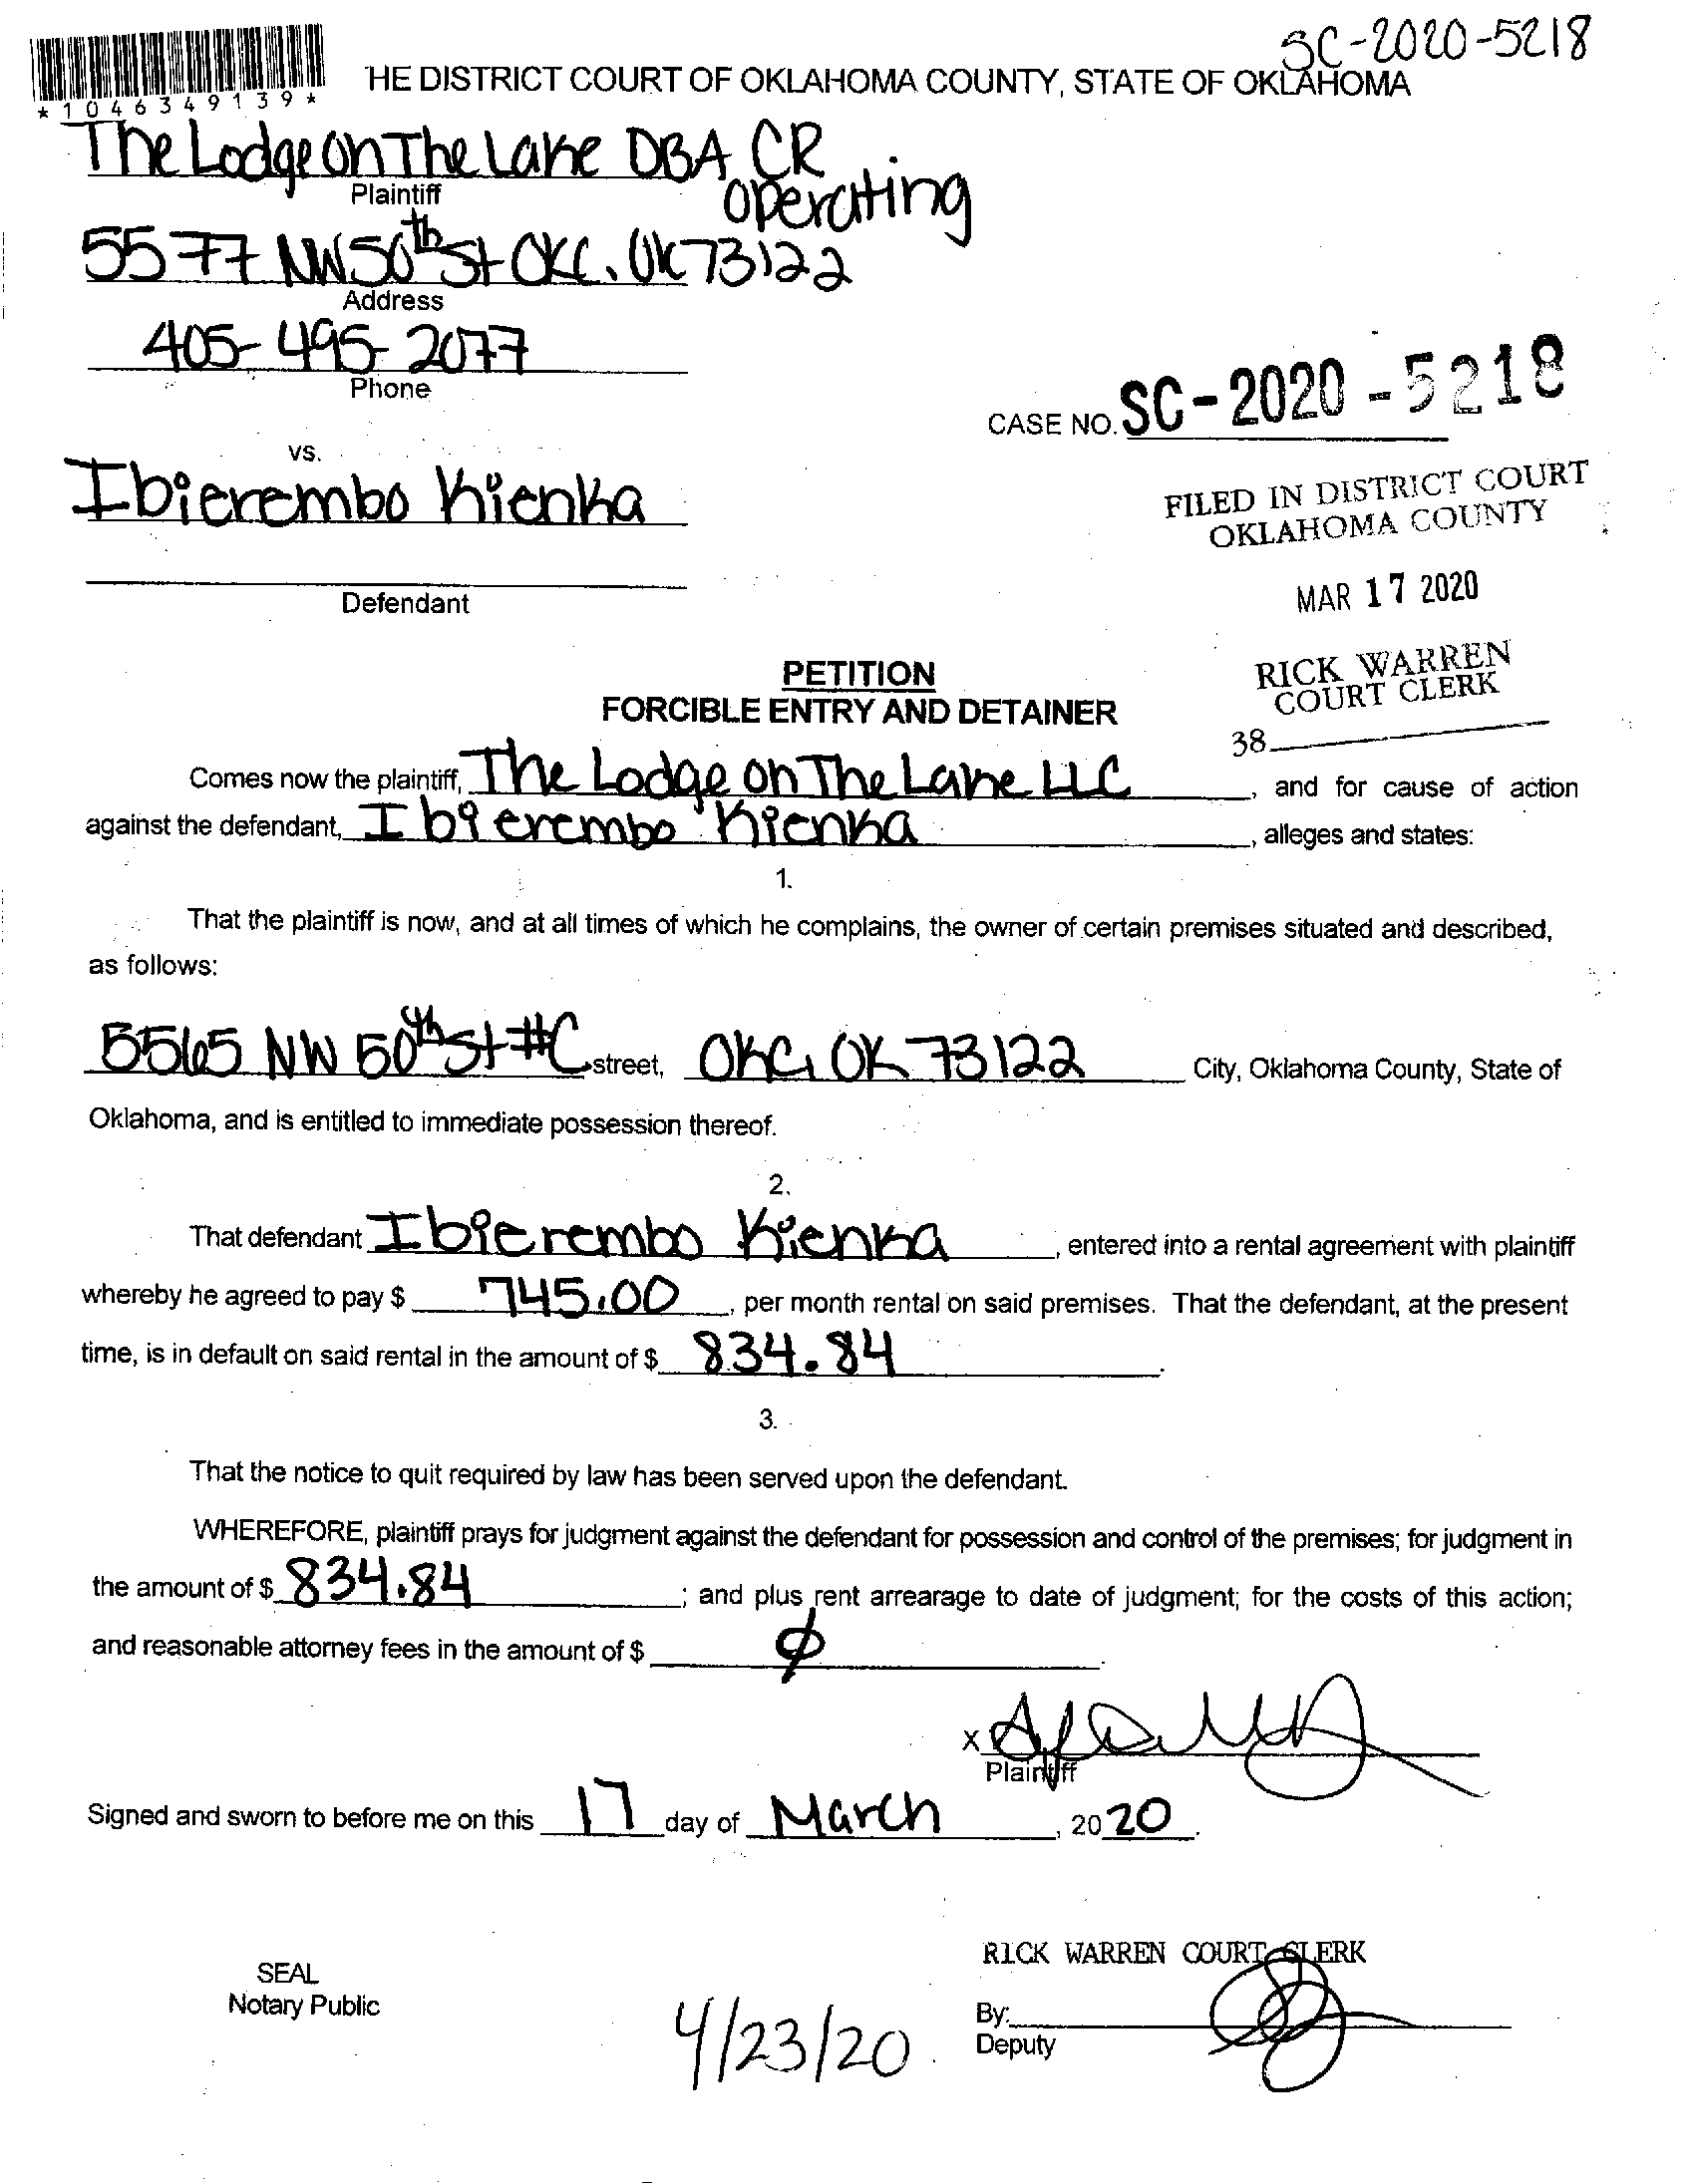 SC-2020-5218
*1046349139*
HE DISTRICT COURT OF OKLAHOMA COUNTY, STATE OF OKLAHOMA
The Lodge On The Lake DBA CR
operating
Plaintiff
5577 NW 50th St OKC. OK 73122
Address
405-495-2077
Phone
CASE NO. SC-2020-5218
vs.
Ibierembo Kienka
FILED IN DISTRICT COURT
OKLAHOMA COUNTY
MAR 17 2020
Defendant
RICK WARREN
COURT CLERK
38
PETITION
FORCIBLE ENTRY AND DETAINER
Comes now the plaintiff, The Lodge on The Lake LLC, and for cause of action
against the defendant, Ibierembo Kienka, alleges and states:
1.
That the plaintiff is now, and at all times of which he complains, the owner of certain premises situated and described,
as follows:
5565 NW 50th St #C street, OKC, OK 73122 City, Oklahoma County, State of
Oklahoma, and is entitled to immediate possession thereof.
2.
That defendant Ibierembo Kienka, entered into a rental agreement with plaintiff
whereby he agreed to pay $ 745.00, per month rental on said premises. That the defendant, at the present
time, is in default on said rental in the amount of $ 834.84.
3.
That the notice to quit required by law has been served upon the defendant.
WHEREFORE, plaintiff prays for judgment against the defendant for possession and control of the premises; for judgment in
the amount of $ 834.84; and plus rent arrearage to date of judgment; for the costs of this action;
and reasonable attorney fees in the amount of $ ∅.
X
Plaintiff
Signed and sworn to before me on this 17 day of March, 2020.
RICK WARREN COURT CLERK
SEAL
Notary Public
4/23/20
By:
Deputy